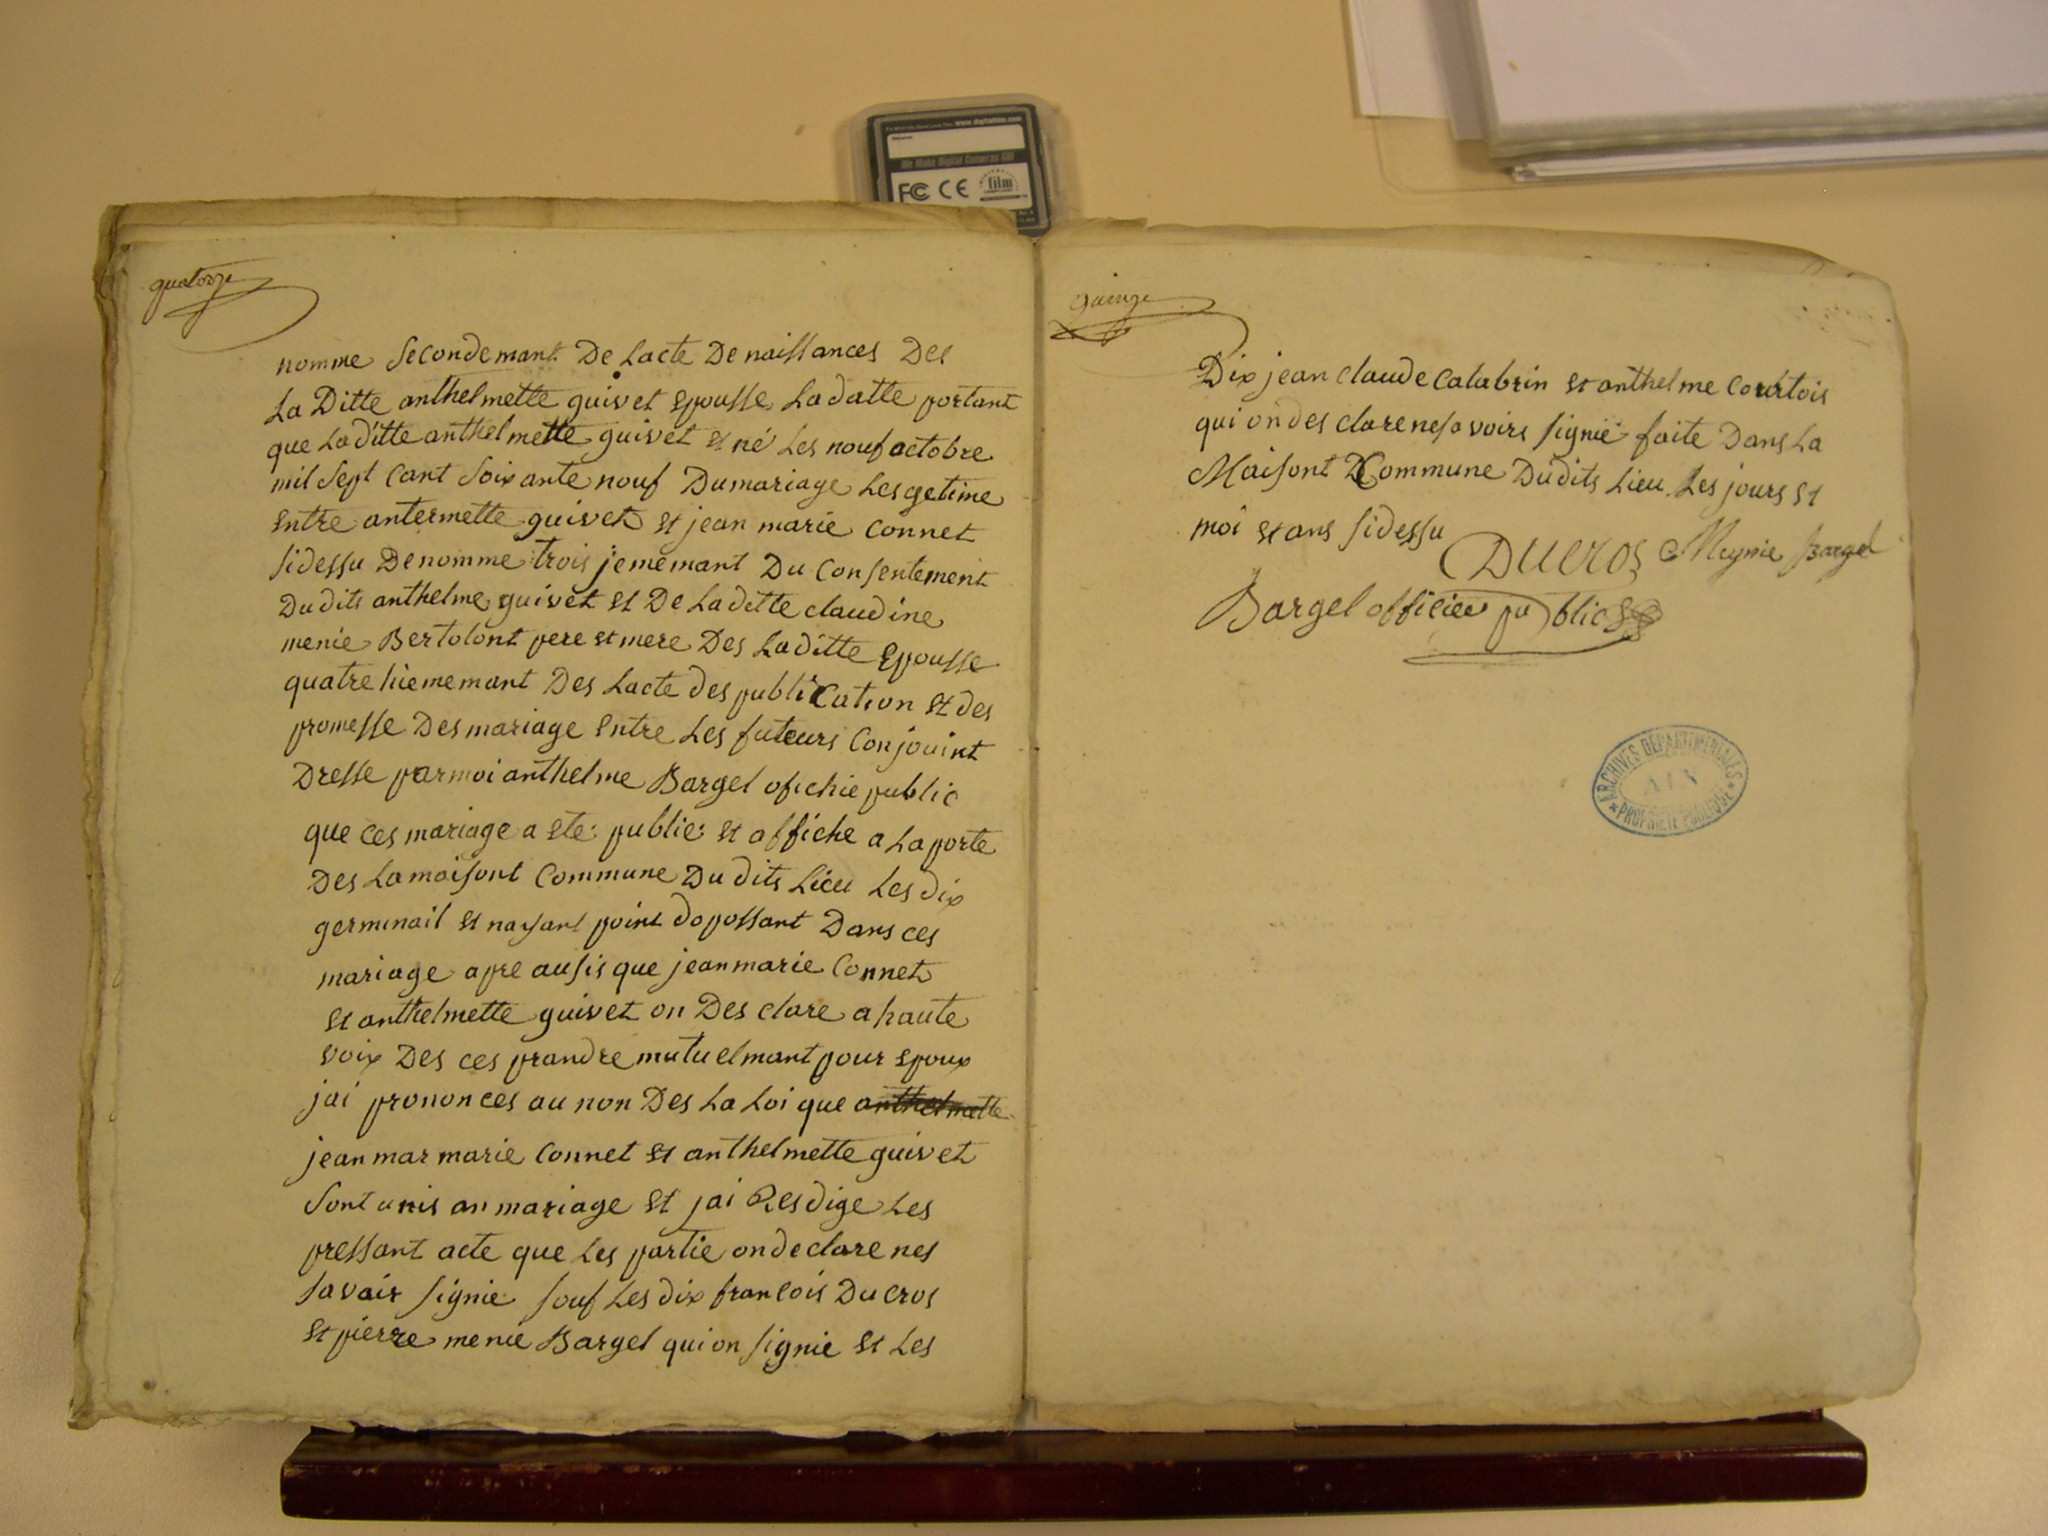 www.digitalfilm.com
We Make Digital Cameras GO!
FC CE film
quatorze
nomme secondemant De Lacte De naissances Des
La Ditte anthelmette guivet Epousse La datte portant
que La ditte anthelmette guivet et né Les nouf octobre
mil sept cant soixante nouf Du mariage Lesgetime
Entre antermette guivet et jean marie Connet
sidessu Denomme troisjememant Du Consentement
Du dits anthelme guivet et De La ditte claudine
menie Bertolont pere et mere Des La ditte Epousse
quatrehiememant Des Lacte des publiCation et des
promesse Des mariage Entre Les futeurs Conjouint
Dresse par moi anthelme Bargel ofichie public
que ces mariage a ete publie et affiche a La porte
Des La maisont Commune Du dits Lieu Les dix
germinail et nayant point dopossant Dans ces
mariage apre ausis que jean marie Connet
et anthelmette guivet on Des clare a haute
voix Des ces prandre mutuelmant pour epoux
jai prononces au non Des La Loi que anthelmette
jean mar marie Connet et anthelmette guivet
sont unis an mariage et jai Resdige Les
pressant acte que Les partie on declare nes
savoir signie souf Les dix francois Ducros
et pierre menie Bargel qui on signie et Les
quinze
Dix jean claude Calabrin et anthelme Courtois
qui on des clare ne savoirs signie faite Dans La
Maisont Commune Du dits Lieu Les jours et
moi et ans sidessu
Ducros Meynie Bargel
Bargel officier public
ARCHIVES DÉPARTEMENTALES
AIN
* PROPRIÉTÉ PUBLIQUE *